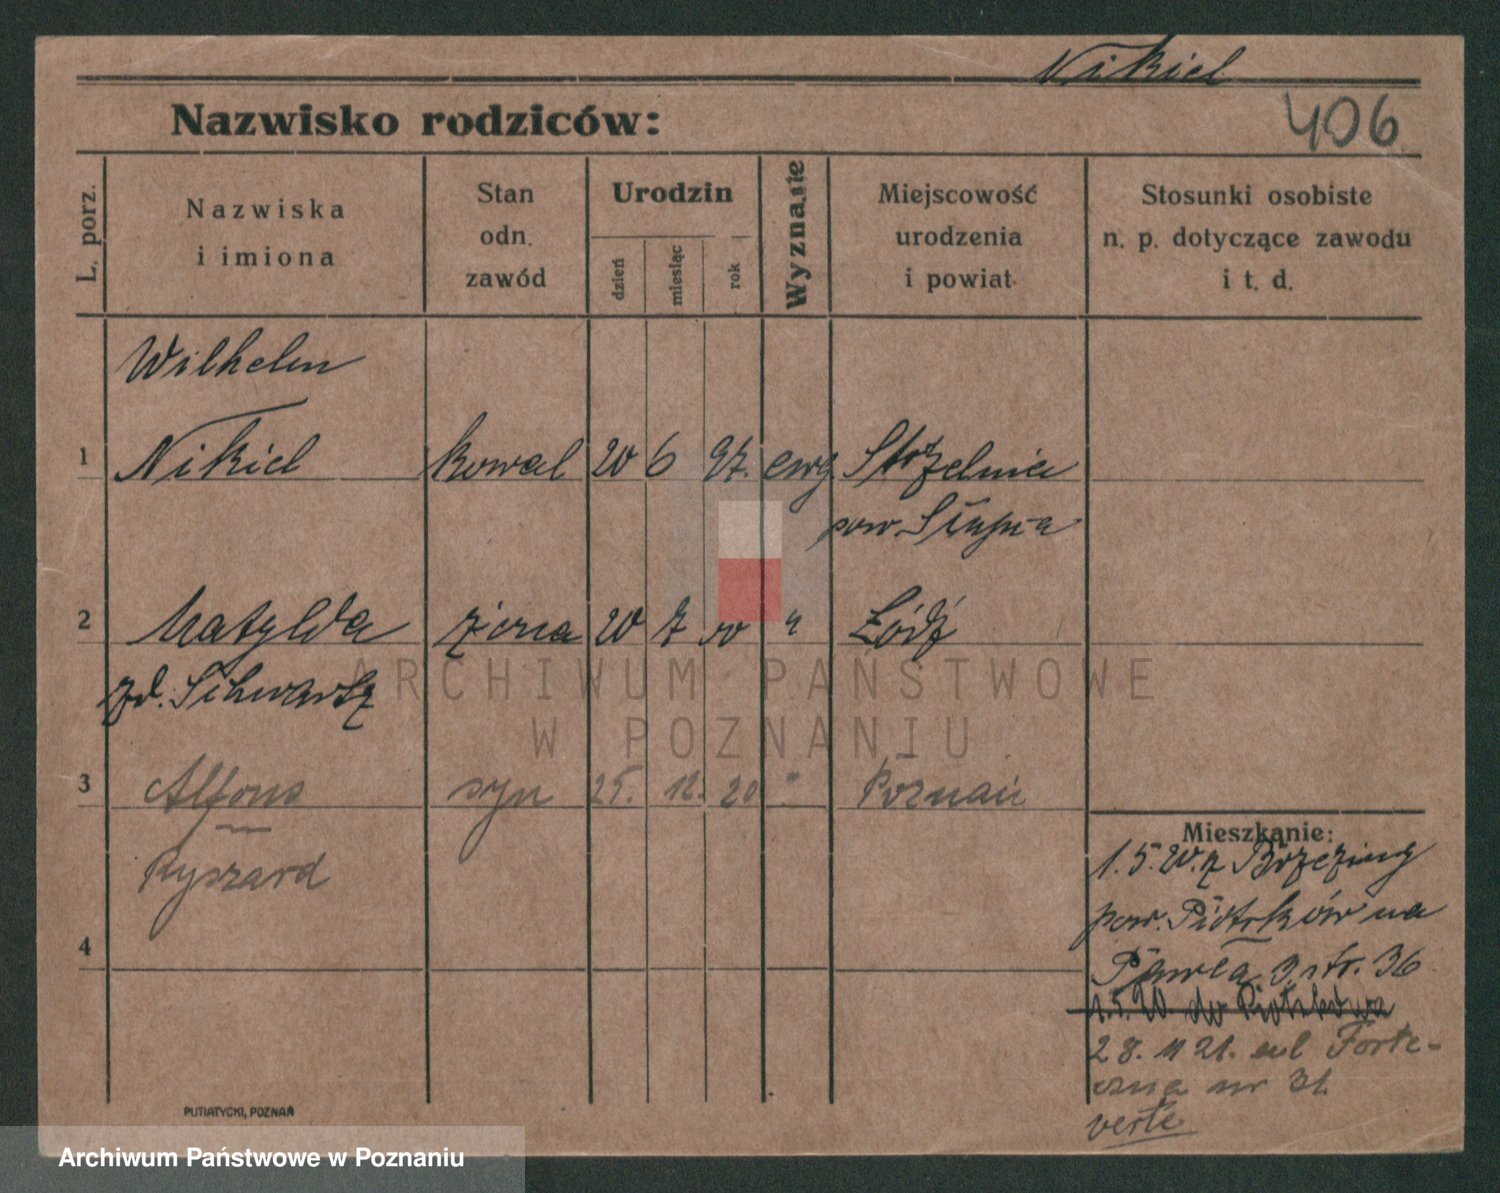 Nikiel
406
Nazwisko rodziców:
L. porz.
Nazwiska
i imiona
Stan
odn.
zawód
Urodzin
dzień
miesiąc
rok
Wyznanie
Miejscowość
urodzenia
i powiat
Stosunki osobiste
n. p. dotyczące zawodu
i t. d.
Wilhelm
1 Nikiel kowal 20 6 97. ewg Strzelnia
pow.
2 Matylda żona 20 7 00 " Łódź
zd. Schwartz
3 Alfons syn 25. 12. 20 " Poznań
Ryszard
4
Mieszkanie:
1.5.20. z Brzeziny
pow. Piotrków na
Pawła 3, ptr. 36
1.5.20. do Piotrkowa
28. 11 21. ul Forte-
czna nr 31.
verte
PUTIATYCKI, POZNAŃ
ARCHIWUM PAŃSTWOWE
W POZNANIU
Archiwum Państwowe w Poznaniu